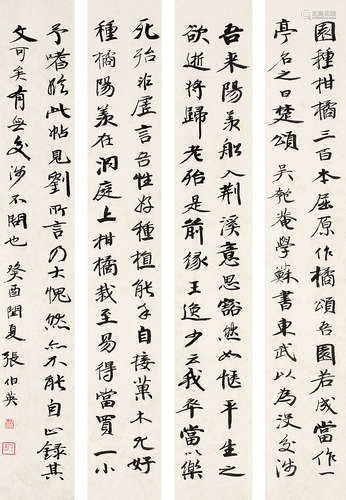 園種柑橘三百本屈原作橘頌名園若成當作一
亭名之曰楚頌 吳匏菴學蘇書東武以為沒交涉
吾来陽羨船入荊溪意思豁然如惬平生之
欲逝將歸老殆是前緣王逸少云我卒當以樂
死殆非虛言吾性好種植能手自接菓木尤好
種橘陽羨在洞庭上柑橘栽至易得當買一小
予嗜臨此帖見劉所言乃大愧然亦不能自止錄其
文可矣有無交涉不問也 癸酉閏夏張伯英